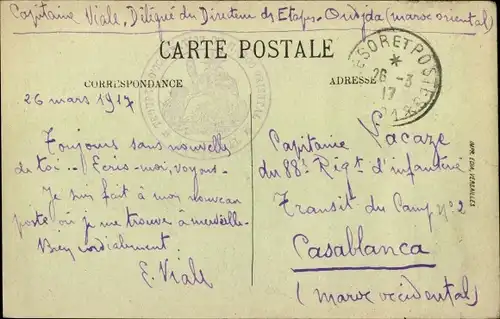 Capitaine Viale, Délégué du Directeur des Etapes - Oudjda (maroc oriental)
CARTE POSTALE
CORRESPONDANCE
ADRESSE
TRESOR ET POSTES
*
26 -3
17
26 mars 1917
Toujours sans nouvelles
de toi - Ecris-moi, voyons -
Je suis fait à mon nouveau
poste où je me trouve à merveille -
Bien cordialement
E. Viale
Capitaine Vacaze
du 88e Rigt d'infanterie
Transit du Camp n° 2
Casablanca
(maroc occidental)
IMP. EDIA, VERSAILLES